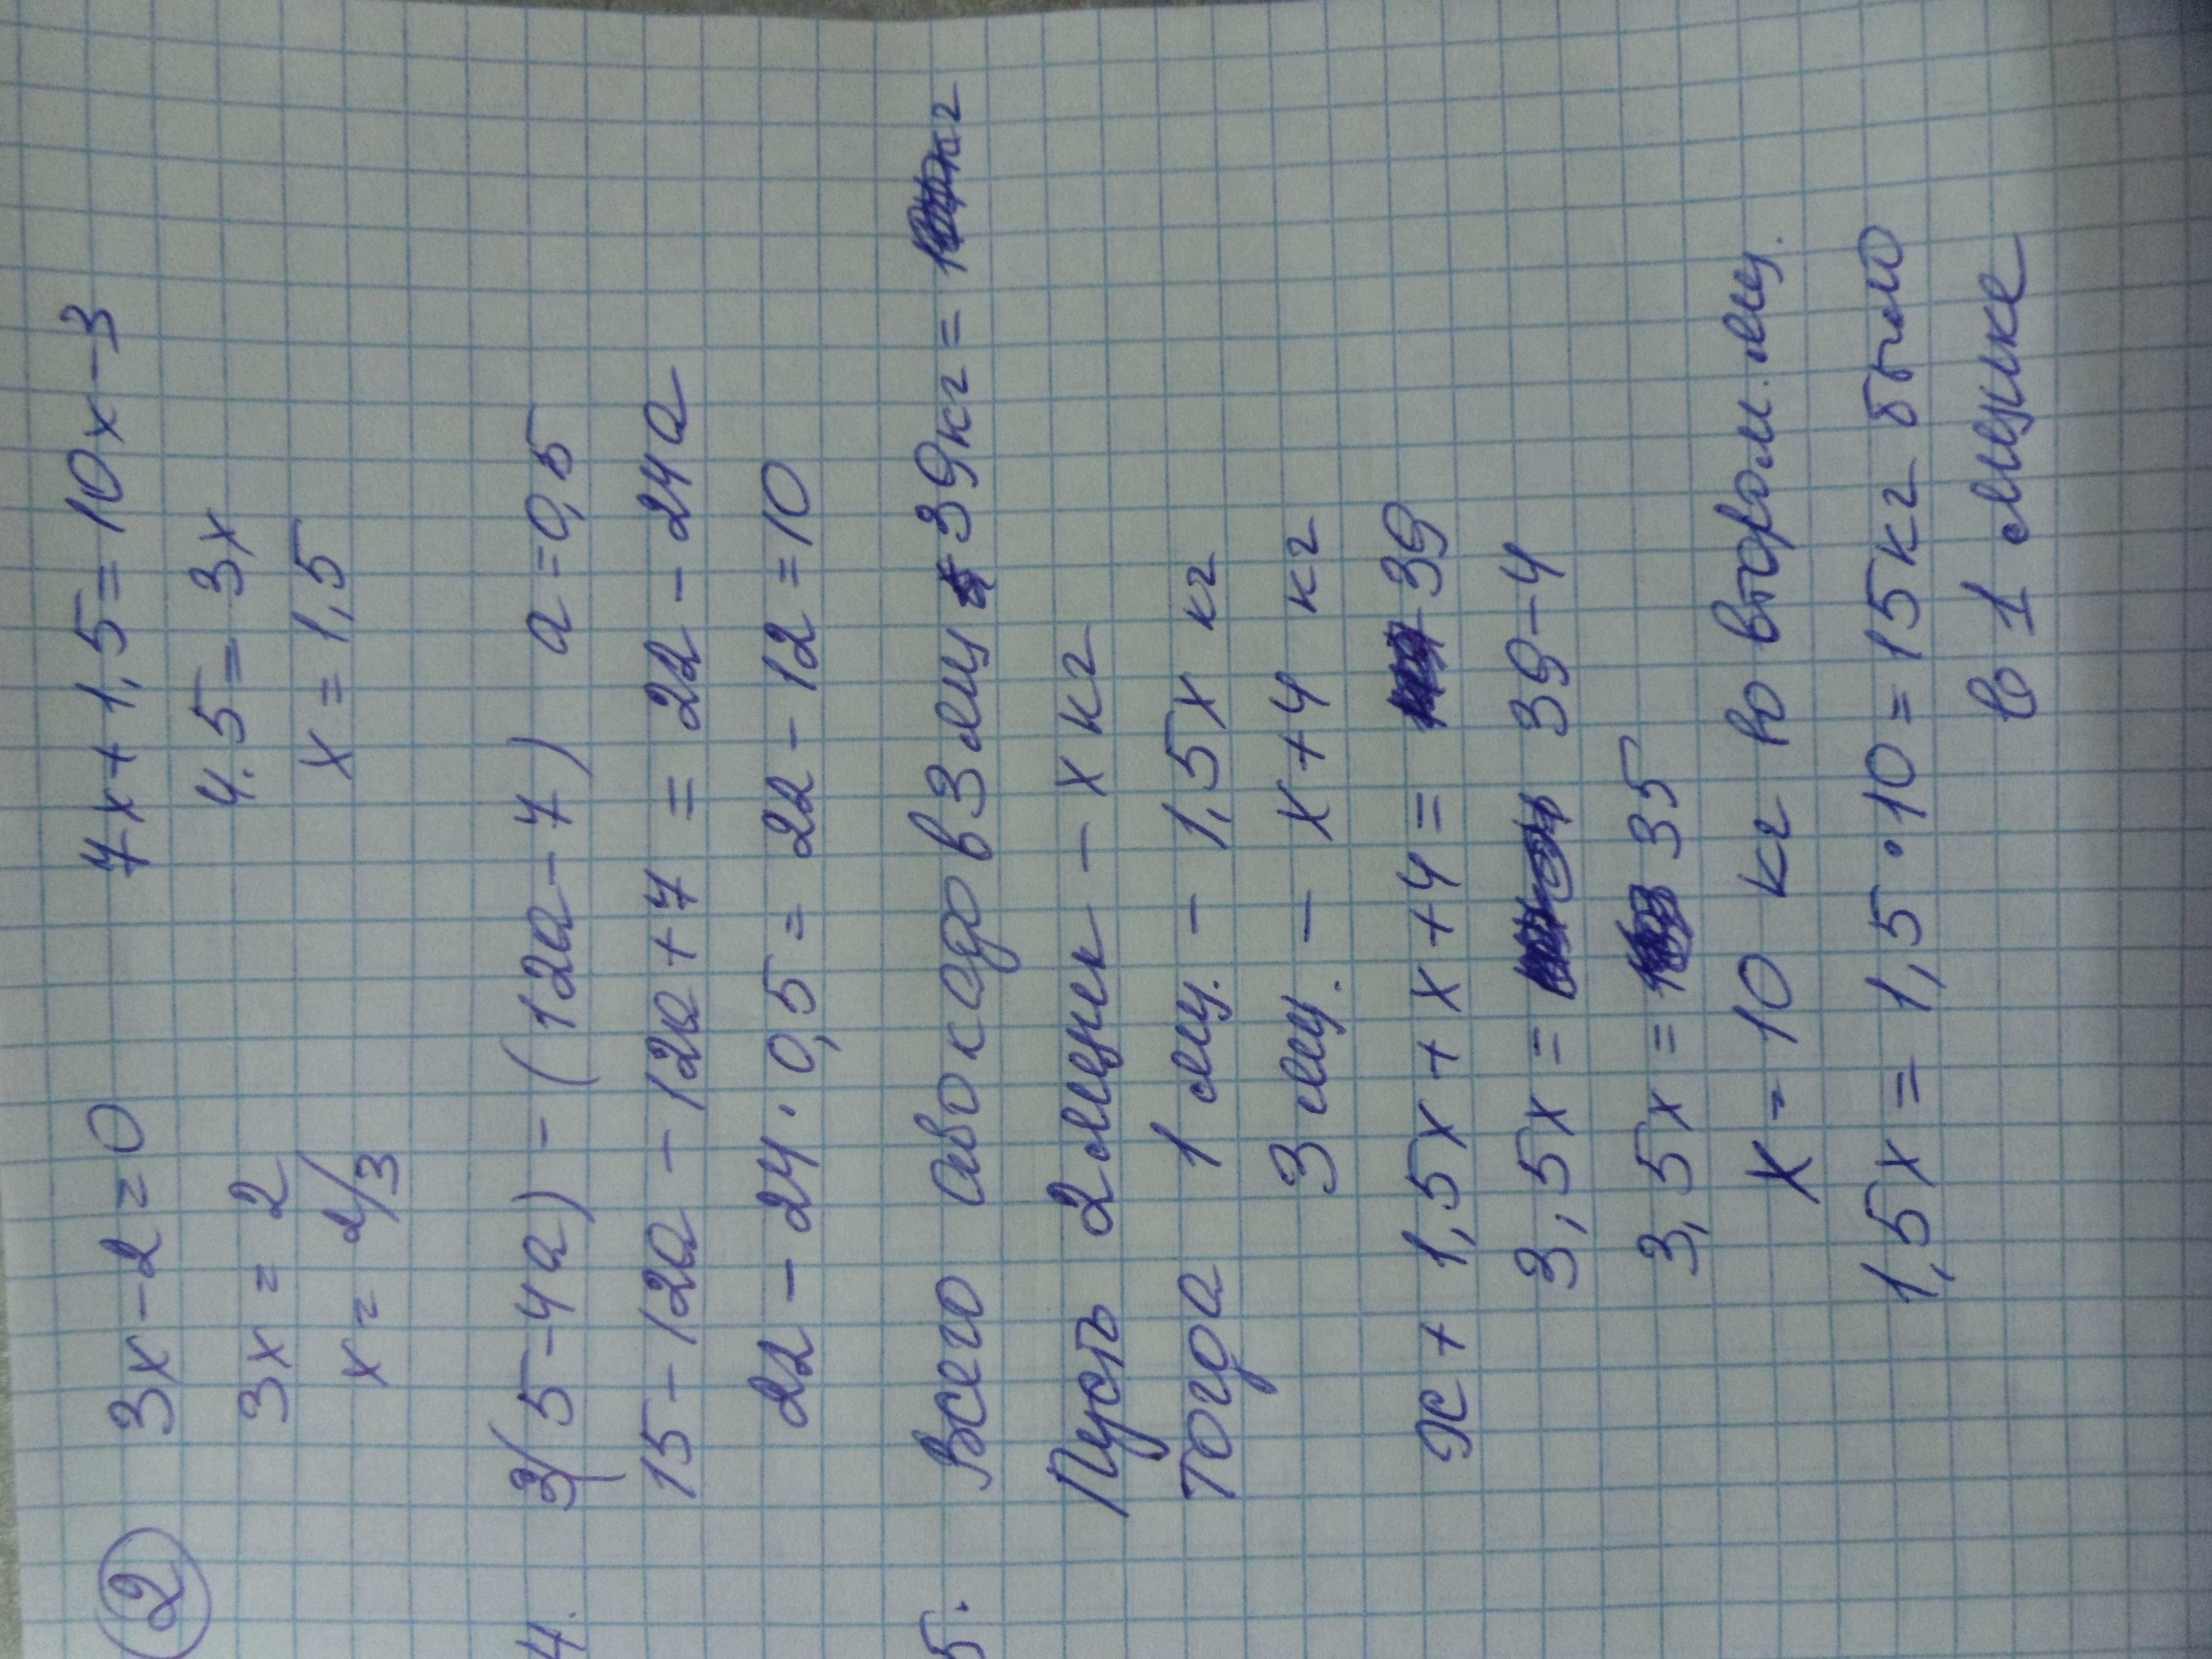 ② 3x-2=0 7x+1,5=10x-3
3x=2 4.5=3x
x=2/3 x=1,5
4. 3(5-4a)-(12a-7) a=0,5
15-12a-12a+7=22-24a
22-24·0,5=22-12=10
5. Всего авокадо в 3 ящ 39кг= кг
Пусть 2 ящик - x кг
тогда 1 ящ. - 1,5x кг
3 ящ. - x+4 кг
x+1,5x+x+4=39
3,5x=39-4
3,5x=35
x=10 кг во втором. ящ.
1,5x=1,5·10=15кг было
в 1 ящике